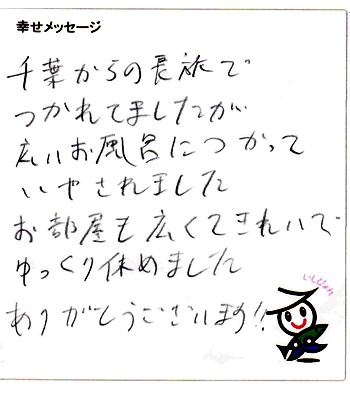 幸せメッセージ
千葉からの長旅で
つかれてましたが
広いお風呂につかって
いやされました
お部屋も広くてきれいで
ゆっくり休めました
ありがとうございます!!